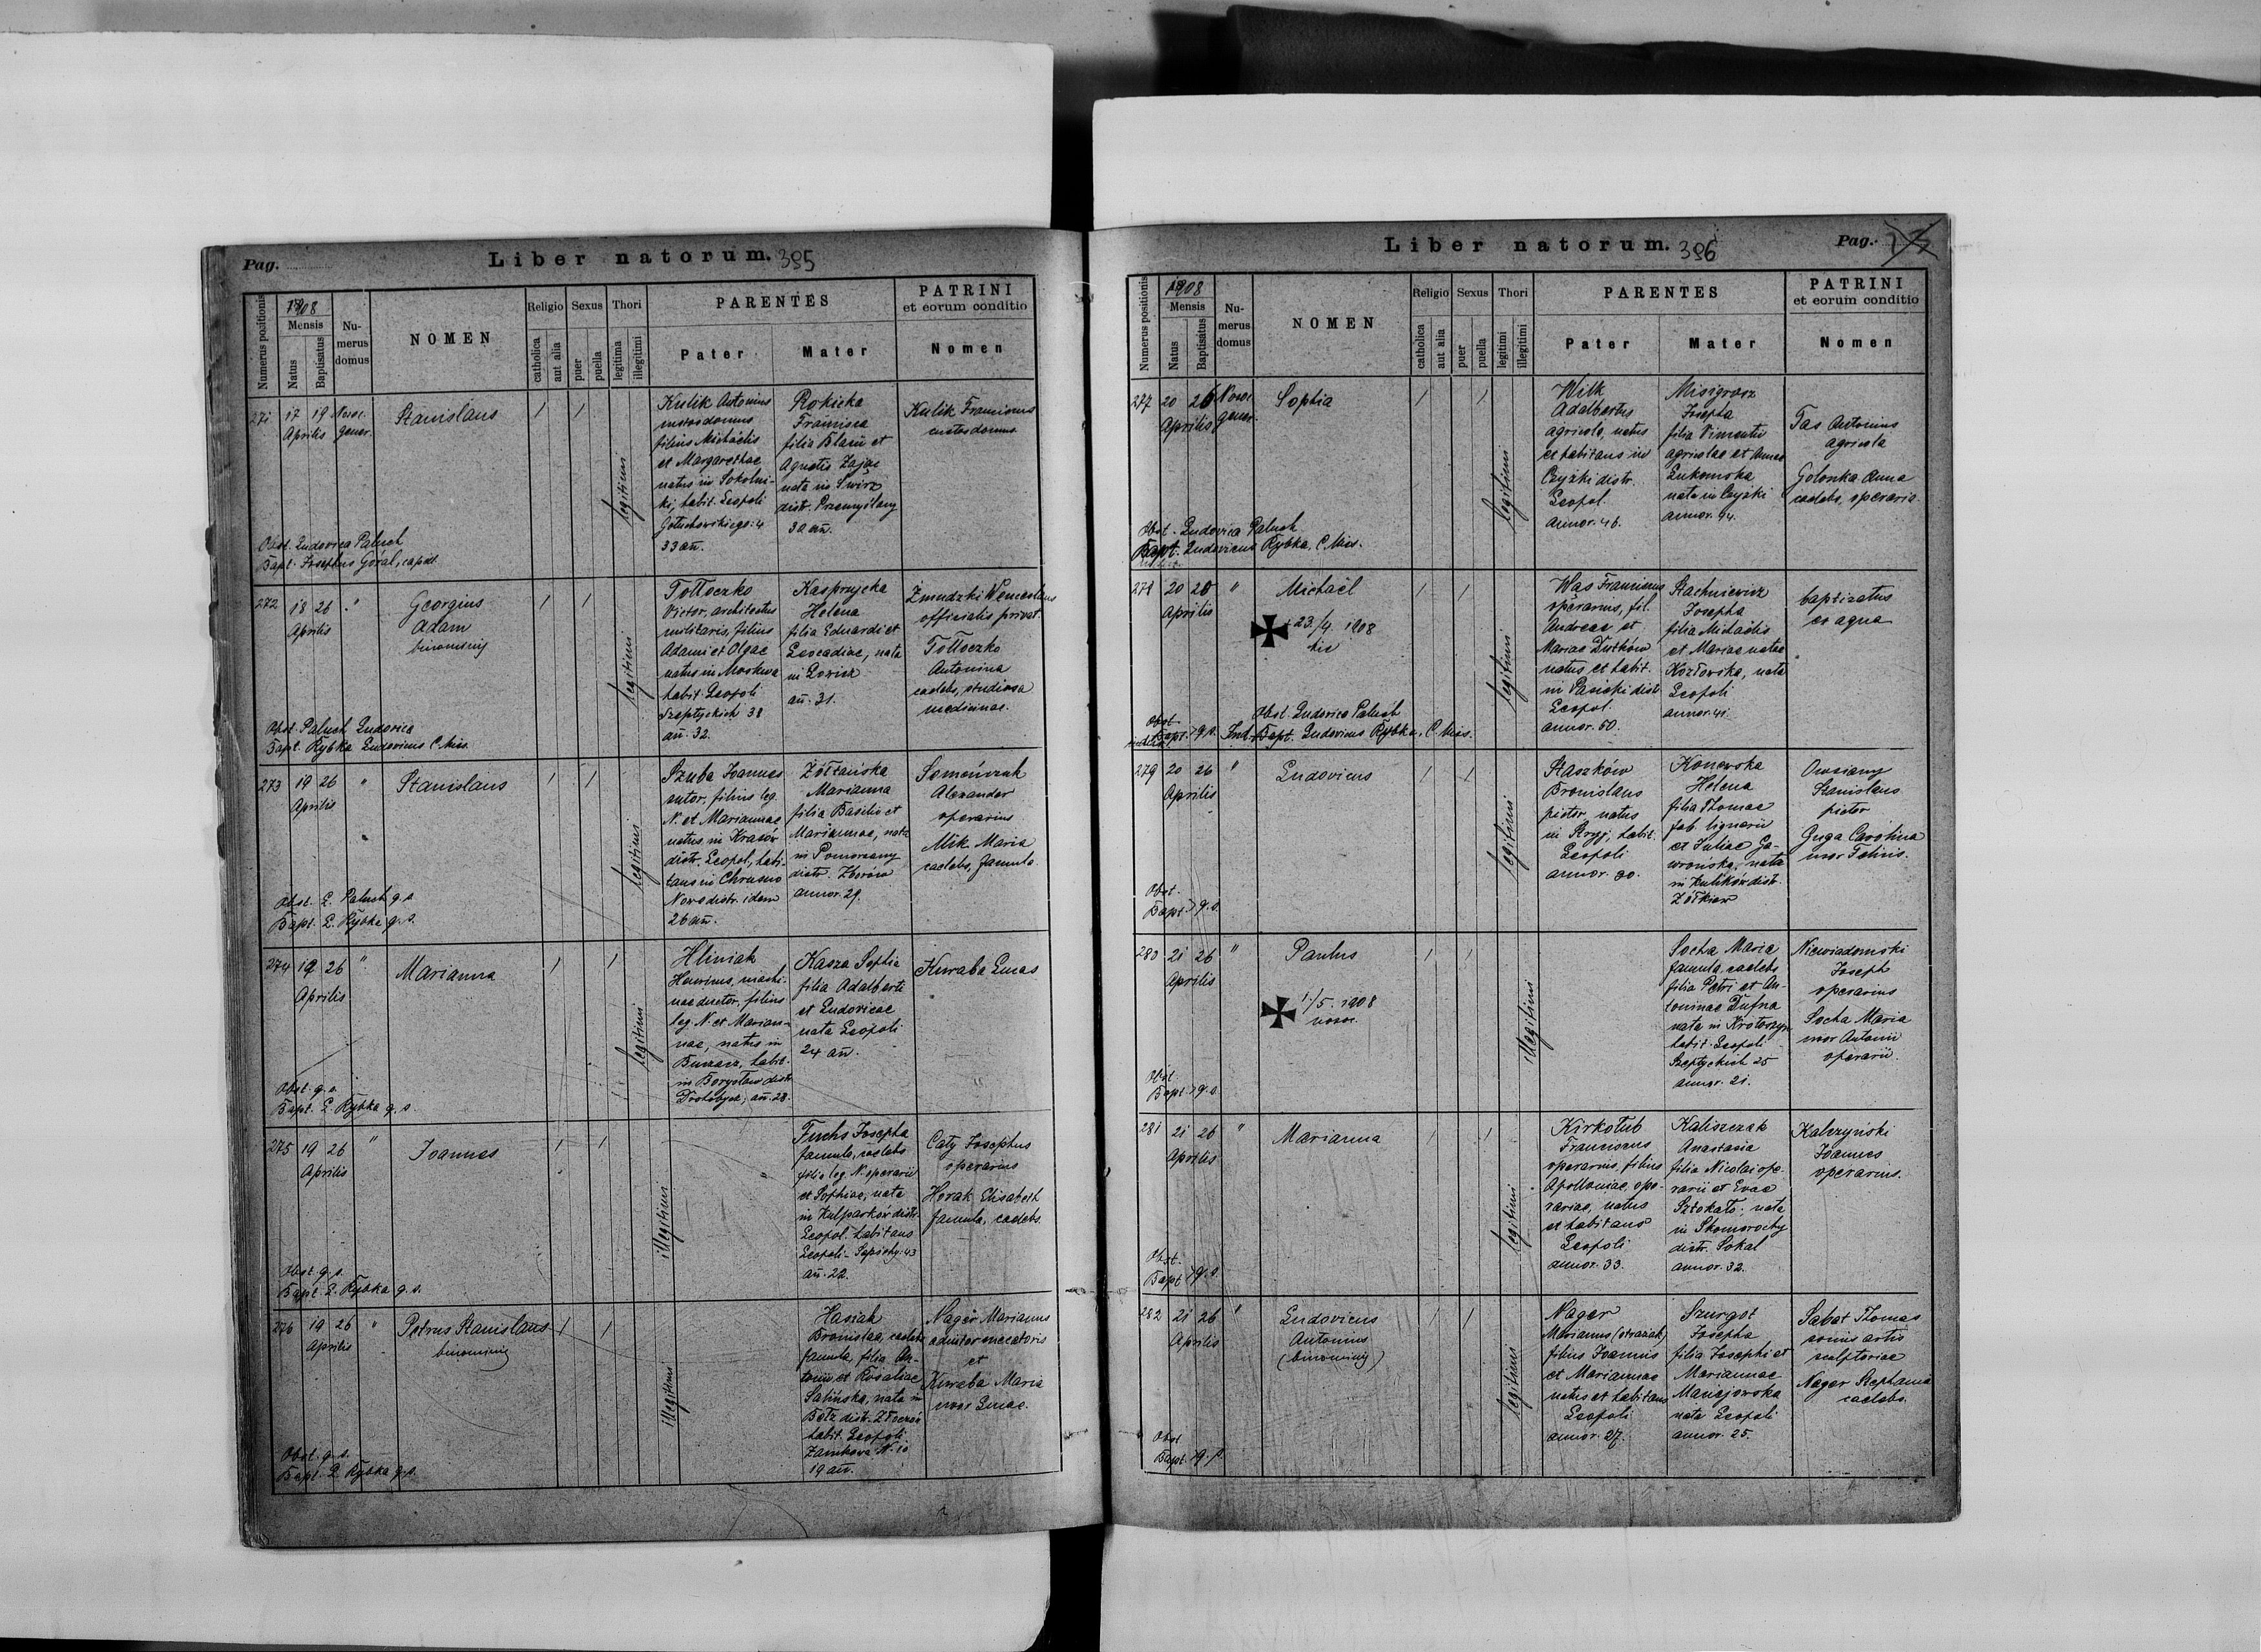 Pag.
Liber natorum. 395
Numerus positionis
1908
Mensis
Natus
Baptisatus
Numerus domus
NOMEN
Religio
catholica
aut alia
Sexus
puer
puella
Thori
legitima
illegitimi
PARENTES
Pater
Mater
PATRINI
et eorum conditio
Nomen
271
17 19
Aprilis
Nosoc.
gener.
Stanislaus
1
1
legitimi
Kulik Antonius
custos domus
filius Michaëlis
et Margarethae
natus in Sokolni-
ki, habit. Leopoli
Gołuchowskiego: 4
33 an̄.
Rokicka
Francisca
filia Blasii et
Agnetis Zając
nata in Swirz
distr. Przemyślany
30 an̄.
Kulik Franciscus
custos domus
Obst. Ludovica Paluch
Bapt. Josephus Góral, capell.
272
18 26
Aprilis
"
Georgius
Adam
binominis
1
1
legitimi
Tołłoczko
Victor, architectus
militaris, filius
Adami et Olgae
natus in Moskwa
habit. Leopoli
Szeptyckich 38
an̄. 32.
Kasprzycka
Helena
filia Eduardi et
Leocadiae, nata
in Lowicz
an̄. 31.
Żmudzki Venceslaus
officialis privat.
Tołłoczko
Antonina
caelebs, studiosa
medicinae.
Obst. Paluch Ludovica
Bapt. Rybka Ludovicus C. Miss.
273
19 26
Aprilis
"
Stanislaus
1
1
legitimi
Szuba Joannes
sutor, filius leg.
N. et Mariannae
natus in Krasów
distr. Leopol, habi-
tans in Chrusno
Nowe distr. idem
26 an̄.
Żółtańska
Marianna
filia Basilii et
Mariannae, nata
in Pomorzany
distr. Zborów
annor. 29.
Semeńczuk
Alexander
operarius
Mik Maria
caelebs, famula.
Obst. L. Paluch q. s.
Bapt. L. Rybka q. s.
274
19 26
Aprilis
"
Marianna
1
1
legitimi
Hliniak
Henricus, machi-
nae ductor, filius
leg. N. et Marian-
nae, natus in
Buczacz, habit.
in Borysław distr.
Drohobycz, an̄. 28.
Kasza Sophia
filia Adalberti
et Ludovicae
nata Leopoli
24 an̄.
Kuraba Lucas
Obst. q. s.
Bapt. L. Rybka q. s.
275
19 26
Aprilis
"
Joannes
1
1
illegitimi
Fuchs Josepha
famula, caelebs
filia leg. N. operarii
et Sophiae, nata
in Kulparków distr.
Leopol. habitans
Leopoli - Sapiehy: 43
an̄. 22.
Caty Josephus
operarius
Horak Elisabeth
famula, caelebs.
Obst. q. s.
Bapt. L. Rybka q. s.
276
19 26
Aprilis
"
Petrus Stanislaus
binominis
1
1
illegitimi
Hasiak
Bronislaa, caelebs
famula, filia An-
tonii et Rosaliae
Salińska, nata in
Bełz distr. Złoczów
habit. Leopoli
Zamkowa N. 10
19 an̄.
Nager Marianus
et
Kuraba Maria
uxor Lucae.
Obst. q. s.
Bapt. L. Rybka q. s.
Liber natorum. 396
Pag.
Numerus positionis
1908
Mensis
Natus
Baptisatus
Numerus domus
NOMEN
Religio
catholica
aut alia
Sexus
puer
puella
Thori
legitimi
illegitimi
PARENTES
Pater
Mater
PATRINI
et eorum conditio
Nomen
277
20 26
Aprilis
Nosoc
gener.
Sophia
1
1
legitimi
Wilk
Adalbertus
agricola, natus
et habitans in
Czyżki distr.
Leopol.
annor. 46.
Miszgrosz
Josepha
filia Vincentii
agricolae et Annae
Lukomska
nata in Czyżki
annor. 44.
Tas Antonius
agricola
Golonka Anna
caelebs, operaria.
Obst. Ludovica Paluch
Bapt. Ludovicus Rybka, C. Miss.
278
20 20
Aprilis
"
Michaël
+23./4. 1908
hic
1
1
legitimi
Was Franciscus
operarius, fil.
Andreae et
Mariae Dutków
natus et habit.
in Pasieki distr
Leopol.
annor. 50.
Stachniewicz
Josepha
filia Michaëlis
et Mariae natae
Kozłowska, nata
Leopoli
annor. 41.
baptizatus
ex aqua
Obst. Ludovica Paluch
Bapt. Ludovicus Rybka, C. Miss.
279
20 26
Aprilis
"
Ludovicus
1
1
legitimi
Staszków
Bronislaus
pictor natus
in Stryj, habit.
Leopoli
annor. 30.
Konewska
Helena
filia Thomae
fab. lignarii
et Juliae Ga-
wrońska, nata
in Kulików distr.
Żółkiew
Owsiany
Stanislaus
pictor
Guga Carolina
uxor Felicis.
Obst.
Bapt. q. s.
280
21 26
Aprilis
"
Paulus
1./5. 1908
nosoc.
1
1
illegitimi
Socha Maria
famula, caelebs
filia Petri et An-
toninae Dufna
nata in Krotoszyn
habit. Leopoli
Szeptyckich 25
annor. 21.
Niewiadomski
Joseph
operarius
Socha Maria
uxor Antonii
operarii.
Obst.
Bapt. q. s.
281
21 26
Aprilis
"
Marianna
1
1
legitimi
Kirkołub
Franciscus
operarius, filius
Apolloniae, ope-
rariae, natus
et habitans
Leopoli
annor. 33.
Kaliszczak
Anastasia
filia Nicolai ope-
rarii et Evae
Sztokało; nata
in Skomorochy
distr. Sokal
annor. 32.
Kalczyński
Joannes
operarius.
Obst.
Bapt. q. s.
282
21 26
Aprilis
"
Ludovicus
Antonius
(binominis)
1
1
legitimi
Nager
Marianus (strażak)
filius Joannis
et Mariannae
natus et habitans
Leopoli
annor. 27.
Szurgot
Josepha
filia Josephi et
Mariannae
Maciejowska
nata Leopoli
annor. 25.
Sabat Thomas
socius artis
sculptoriae
Nager Stephania
caelebs.
Obst
Bapt. q. s.